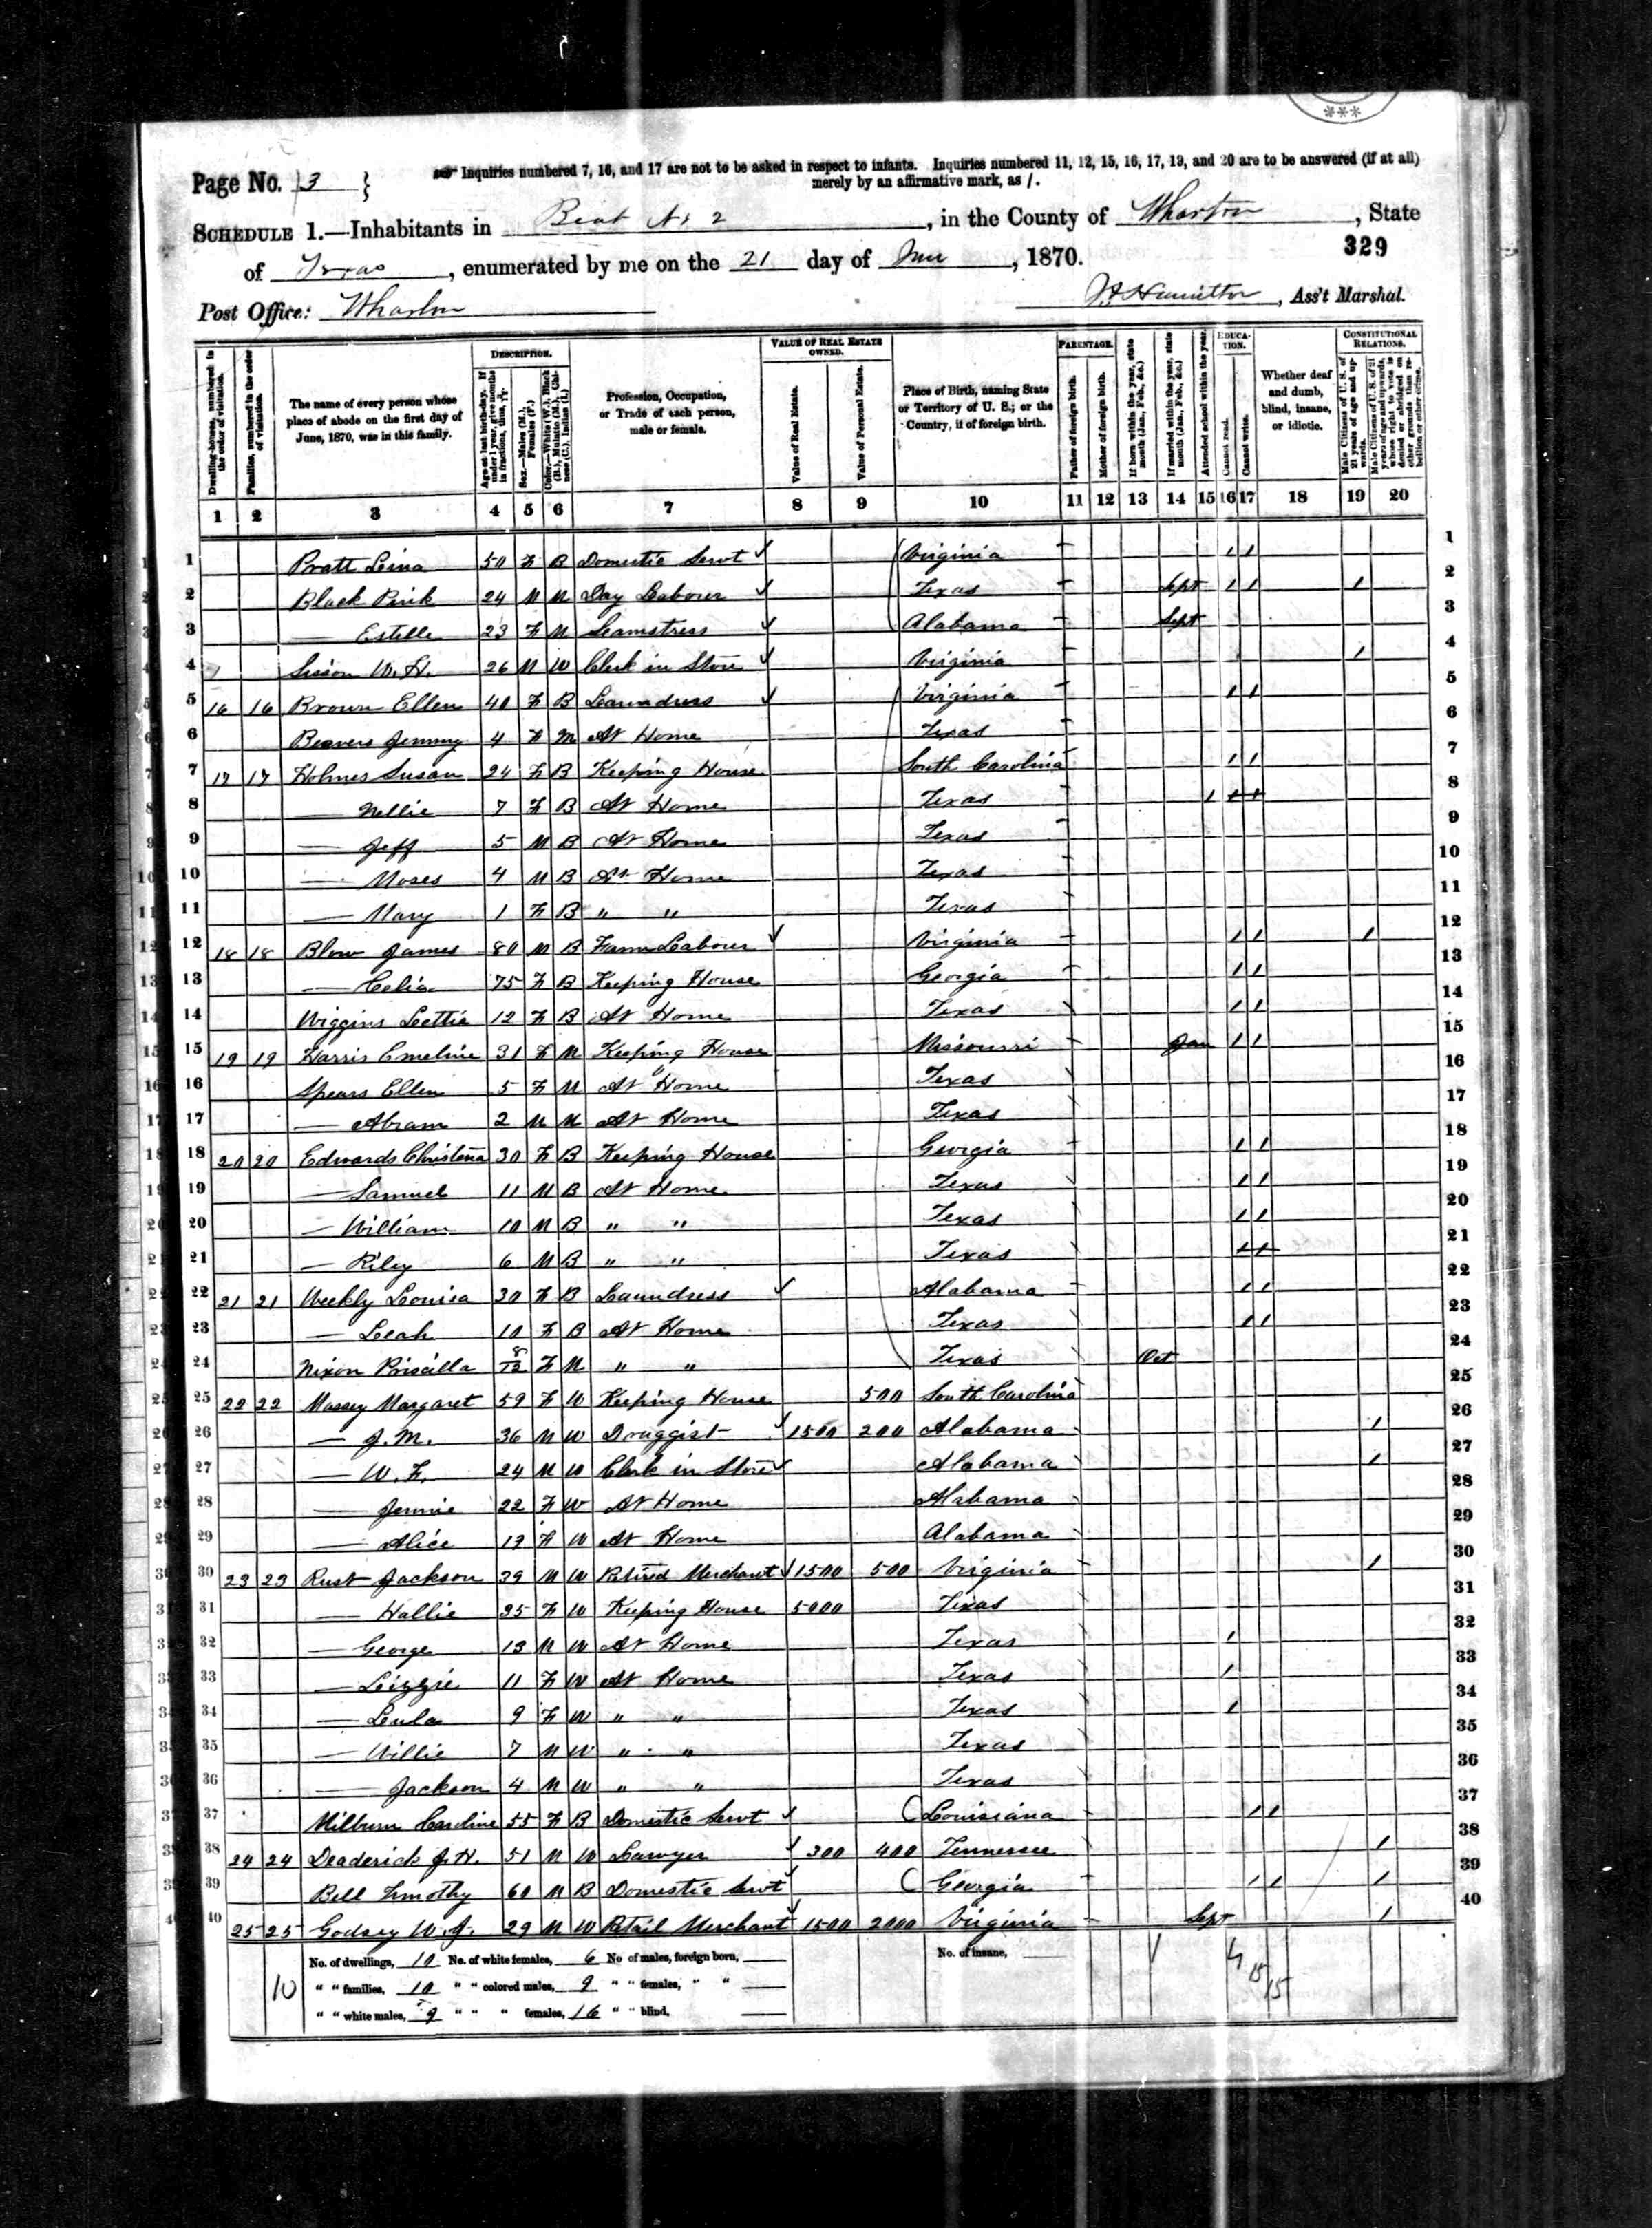 ***
Page No. 3 }
Inquiries numbered 7, 16, and 17 are not to be asked in respect to infants. Inquiries numbered 11, 12, 15, 16, 17, 19, and 20 are to be answered (if at all)
merely by an affirmative mark, as /.
SCHEDULE 1.—Inhabitants in Beat No 2, in the County of Wharton, State
of Texas, enumerated by me on the 21 day of June, 1870.
329
Post Office: Wharton
Hamilton, Ass't Marshal.
Dwelling-houses, numbered in the order of visitation.
Families, numbered in the order of visitation.
The name of every person whose place of abode on the first day of June, 1870, was in this family.
DESCRIPTION.
Age at last birth-day. If under 1 year, give months in fractions, thus, 3/12
Sex.—Males (M.), Females (F.)
Color.—White (W.), Black (B.), Mulatto (M.), Chinese (C.), Indian (I.)
Profession, Occupation, or Trade of each person, male or female.
VALUE OF REAL ESTATE OWNED.
Value of Real Estate.
Value of Personal Estate.
Place of Birth, naming State or Territory of U. S.; or the Country, if of foreign birth.
PARENTAGE.
Father of foreign birth.
Mother of foreign birth.
If born within the year, state month (Jan., Feb., &c.)
If married within the year, state month (Jan., Feb., &c.)
Attended school within the year.
EDUCATION.
Cannot read.
Cannot write.
Whether deaf and dumb, blind, insane, or idiotic.
CONSTITUTIONAL RELATIONS.
Male Citizens of U. S. of 21 years of age and upwards.
Male Citizens of U. S. of 21 years of age and upwards, whose right to vote is denied or abridged on other grounds than rebellion or other crime.
1 2 3 4 5 6 7 8 9 10 11 12 13 14 15 16 17 18 19 20
1 Pratt Leina 50 F B Domestic Servt Virginia / / 1
2 Black Pink 24 M M Day Labourer Texas Sept / / / 2
3 — Estelle 23 F M Seamstress Alabama Sept 3
4 Sisson W. H. 26 M W Clerk in Store Virginia / 4
5 16 16 Brown Ellen 40 F B Laundress Virginia / / 5
6 Beavers Jemmy 4 F M At Home Texas 6
7 17 17 Holmes Susan 24 F B Keeping House South Carolina / / 7
8 — Nellie 7 F B At Home Texas / 8
9 — Jeff 5 M B At Home Texas 9
10 — Moses 4 M B At Home Texas 10
11 — Mary 1 F B " " Texas 11
12 18 18 Blow James 80 M B Farm Labourer Virginia / / / 12
13 — Celia 75 F B Keeping House Georgia / / 13
14 Wiggins Lettie 12 F B At Home Texas / / 14
15 19 19 Harris Emeline 31 F M Keeping House Missouri Jan / / 15
16 Spears Ellen 5 F M At Home Texas 16
17 — Abram 2 M M At Home Texas 17
18 20 20 Edwards Christena 30 F B Keeping House Georgia / / 18
19 — Samuel 11 M B At Home Texas / / 19
20 — William 10 M B " " Texas / / 20
21 — Riley 6 M B " " Texas 21
22 21 21 Weekly Louisa 30 F B Laundress Alabama / / 22
23 — Leah 10 F B At Home Texas / / 23
24 Nixon Priscilla 8/12 F M " " Texas Oct 24
25 22 22 Massey Margaret 59 F W Keeping House 500 South Carolina 25
26 — J. M. 36 M W Druggist 1500 200 Alabama / 26
27 — W. F. 24 M W Clerk in Store Alabama / 27
28 — Jennie 22 F W At Home Alabama 28
29 — Alice 19 F W At Home Alabama 29
30 23 23 Rust Jackson 39 M W Retired Merchant 1500 500 Virginia / 30
31 — Hallie 35 F W Keeping House 5000 Texas 31
32 — George 13 M W At Home Texas / 32
33 — Lizzie 11 F W At Home Texas / 33
34 — Leula 9 F W " " Texas / 34
35 — Willie 7 M W " " Texas 35
36 — Jackson 4 M W " " Texas 36
37 Milburn Caroline 55 F B Domestic Servt Louisiana / / 37
38 24 24 Deaderick J. H. 51 M W Lawyer 300 400 Tennessee / 38
39 Bell Timothy 60 M B Domestic Servt Georgia / / / 39
40 25 25 Godsey W. J. 29 M W Retail Merchant 1500 2000 Virginia Sept / 40
No. of dwellings, 10 No. of white females, 6 No of males, foreign born, —— No. of insane, ——
10 " " families, 10 " " colored males, 9 " " females, " " ——
" " white males, 9 " " " females, 16 " " blind, ——
1 4 15 15